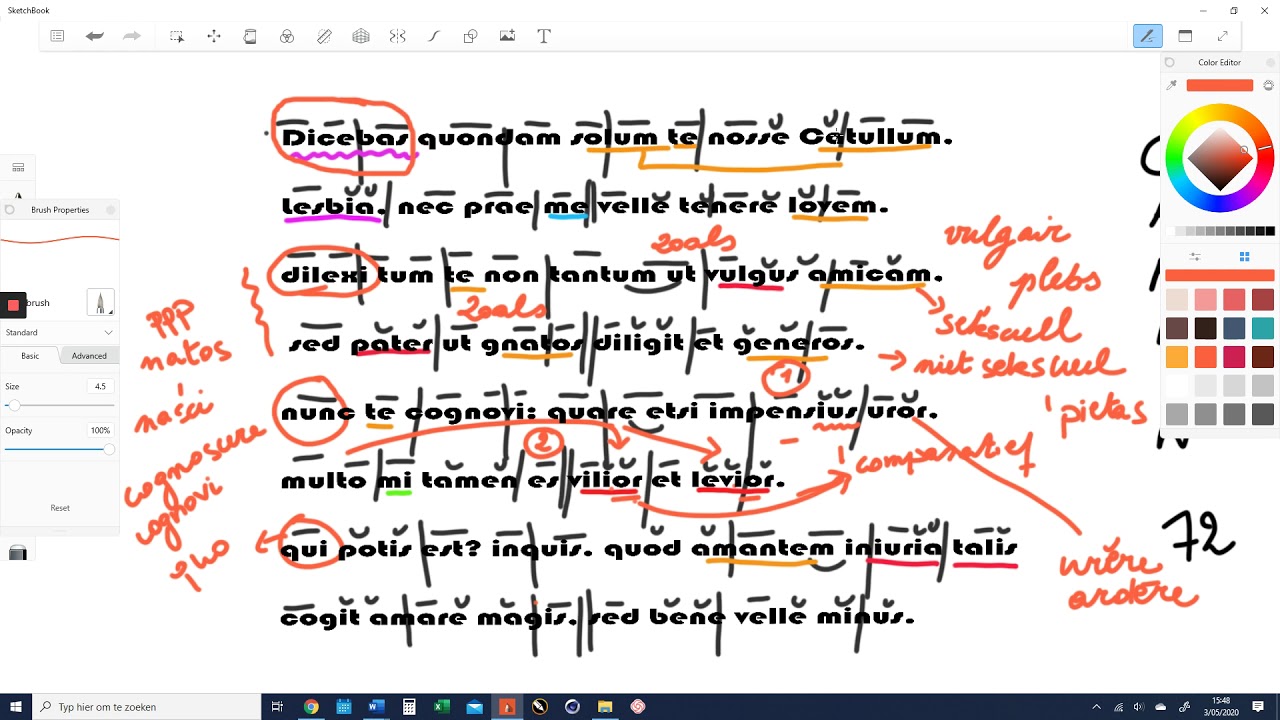 SketchBook
Color Editor
Dicebas quondam solum te nosse Catullum.
Lesbia, nec prae me velle tenere Iovem.
zoals
vulgair
plebs
dilexi tum te non tantum ut vulgus amicam.
Brush Properties
brush
Standard
Basic
Advanced
Size
4.5
Opacity
100%
Reset
zoals
seksueel
PPP
natos
nasci
sed pater ut gnatos diligit et generos.
niet seksueel
pietas
1
nunc te cognovi: quare etsi impensius uror.
cognoscere
cognovi
2
comparatief
multo mi tamen es vilior et levior.
qui potis est? inquis. quod amantem iniuria talis
quo
72
urere
ardere
cogit amare magis. sed bene velle minus.
Typ hier om te zoeken
15:48
3/05/2020